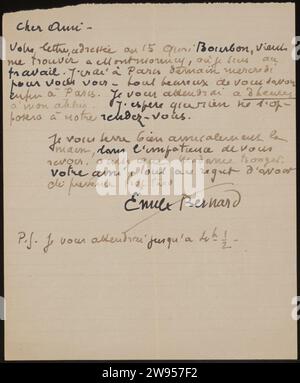 Cher Ami -
Votre lettre adressée au 15 Quai Bourbon, vient
me trouver à Montmorency, où je suis au
travail. J'irai à Paris demain mercredi
pour vous voir - tout heureux de vous savoir
enfin à Paris. Je vous attendrai à 3 heures
à mon atelier. J'espère que rien ne s'op-
posera à notre rendez-vous.
Je vous serre bien amicalement la
main, dans l'impatience de vous
revoir.
Votre ami regret d'avoir
Émile Bernard
P.S. Je vous attendrai jusqu'à 4h ½ -
alamy
Image ID: 2W957F2
www.alamy.com